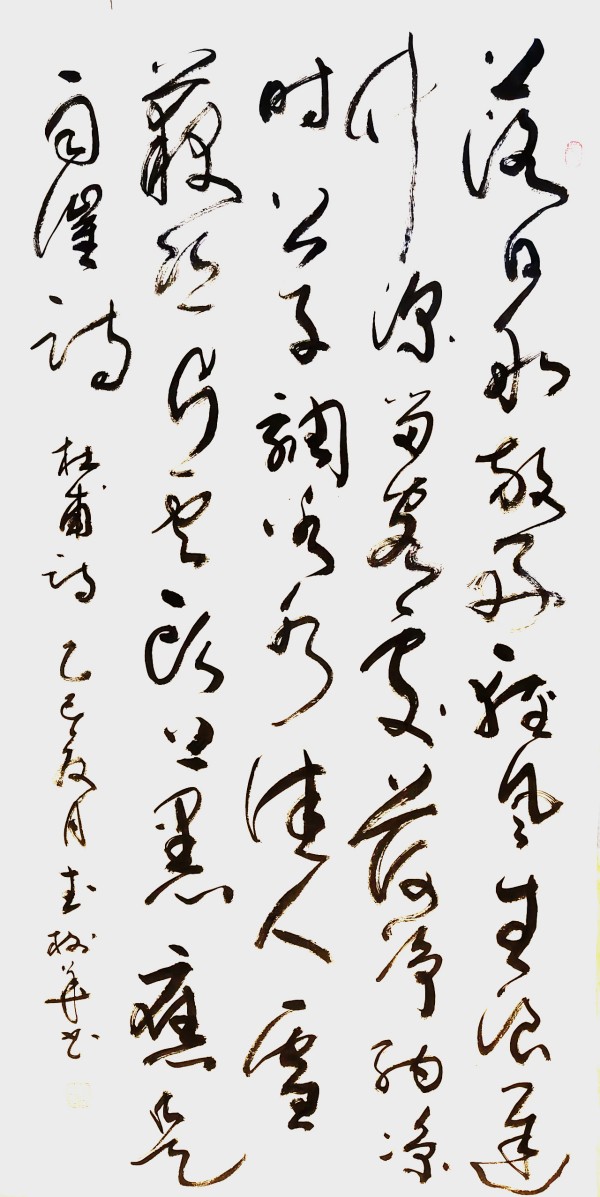 落日放好轻风生浪迟
竹深留客处荷净纳凉
时公子调冰水佳人雪
藕丝片云头上黑应是
雨催诗 杜甫诗 乙巳夏月 树华书